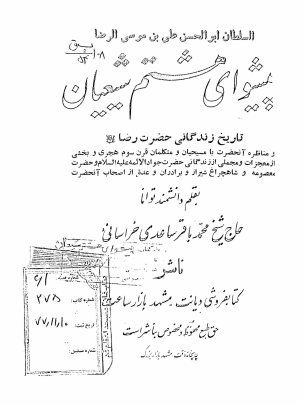 السلطان ابوالحسن علی بن موسی الرضا
پیشوای هشتم شیعیان
تاریخ زندگانی حضرت رضا
و مناظره آنحضرت با مسیحیان و متکلمان قرن سوم هجری و بخشی
از معجزات و مجملی از زندگانی حضرت جواد الائمه علیه السلام و حضرت
معصومه و شاهچراغ شیراز و برادران و عدهٔ از اصحاب آنحضرت
بقلم دانشمند توانا
حاج شیخ محمد باقر ساعدی خراسانی
ناشر
کتابفروشی دیانت مشهد بازار ساعت
حق طبع محفوظ و مخصوص ناشر است
شماره کتاب:
تاریخ ثبت:
شماره مسلسل: